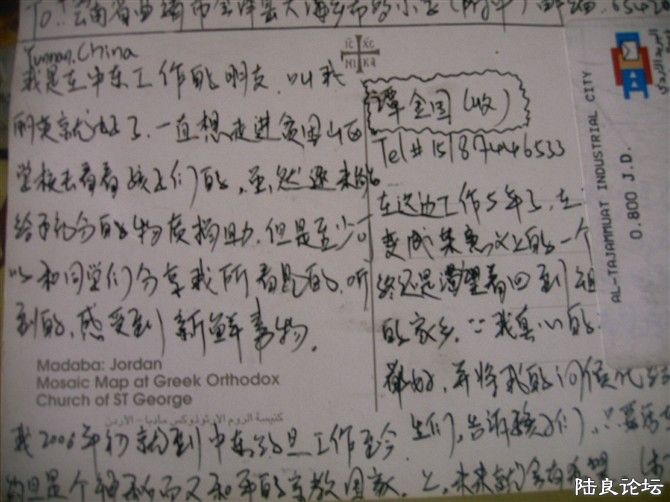 To: 云南省曲靖市会泽县大海乡
Yunnan, China
IC XC
NI KA
我是在中东工作的朋友，叫我
丽英就好了，一直想走进贫困山区
学校去看看孩子们的，虽然
给予的物质和帮助，但是至少可
以和同学们分享我所看见的，听
到的，感受到新鲜事物。
Madaba: Jordan
Mosaic Map at Greek Orthodox
Church of ST George
كنيسة الروم الارثوذوكس مادبا - الاردن
我2006年初来到中东约旦工作至今
约旦是个神秘而又和平的宗教国家
谭金国（收）
Tel # 15187446533
在这边工作5年了，在
变成某意义上的一个
终还是渴望着回到祖
的家乡。我真心的
都好，并将我的问候
生们，告诉孩子们，只要
上，未来就会有希望
AL-TAJAMMUAT INDUSTRIAL CITY
0.800 J.D.
陆良论坛